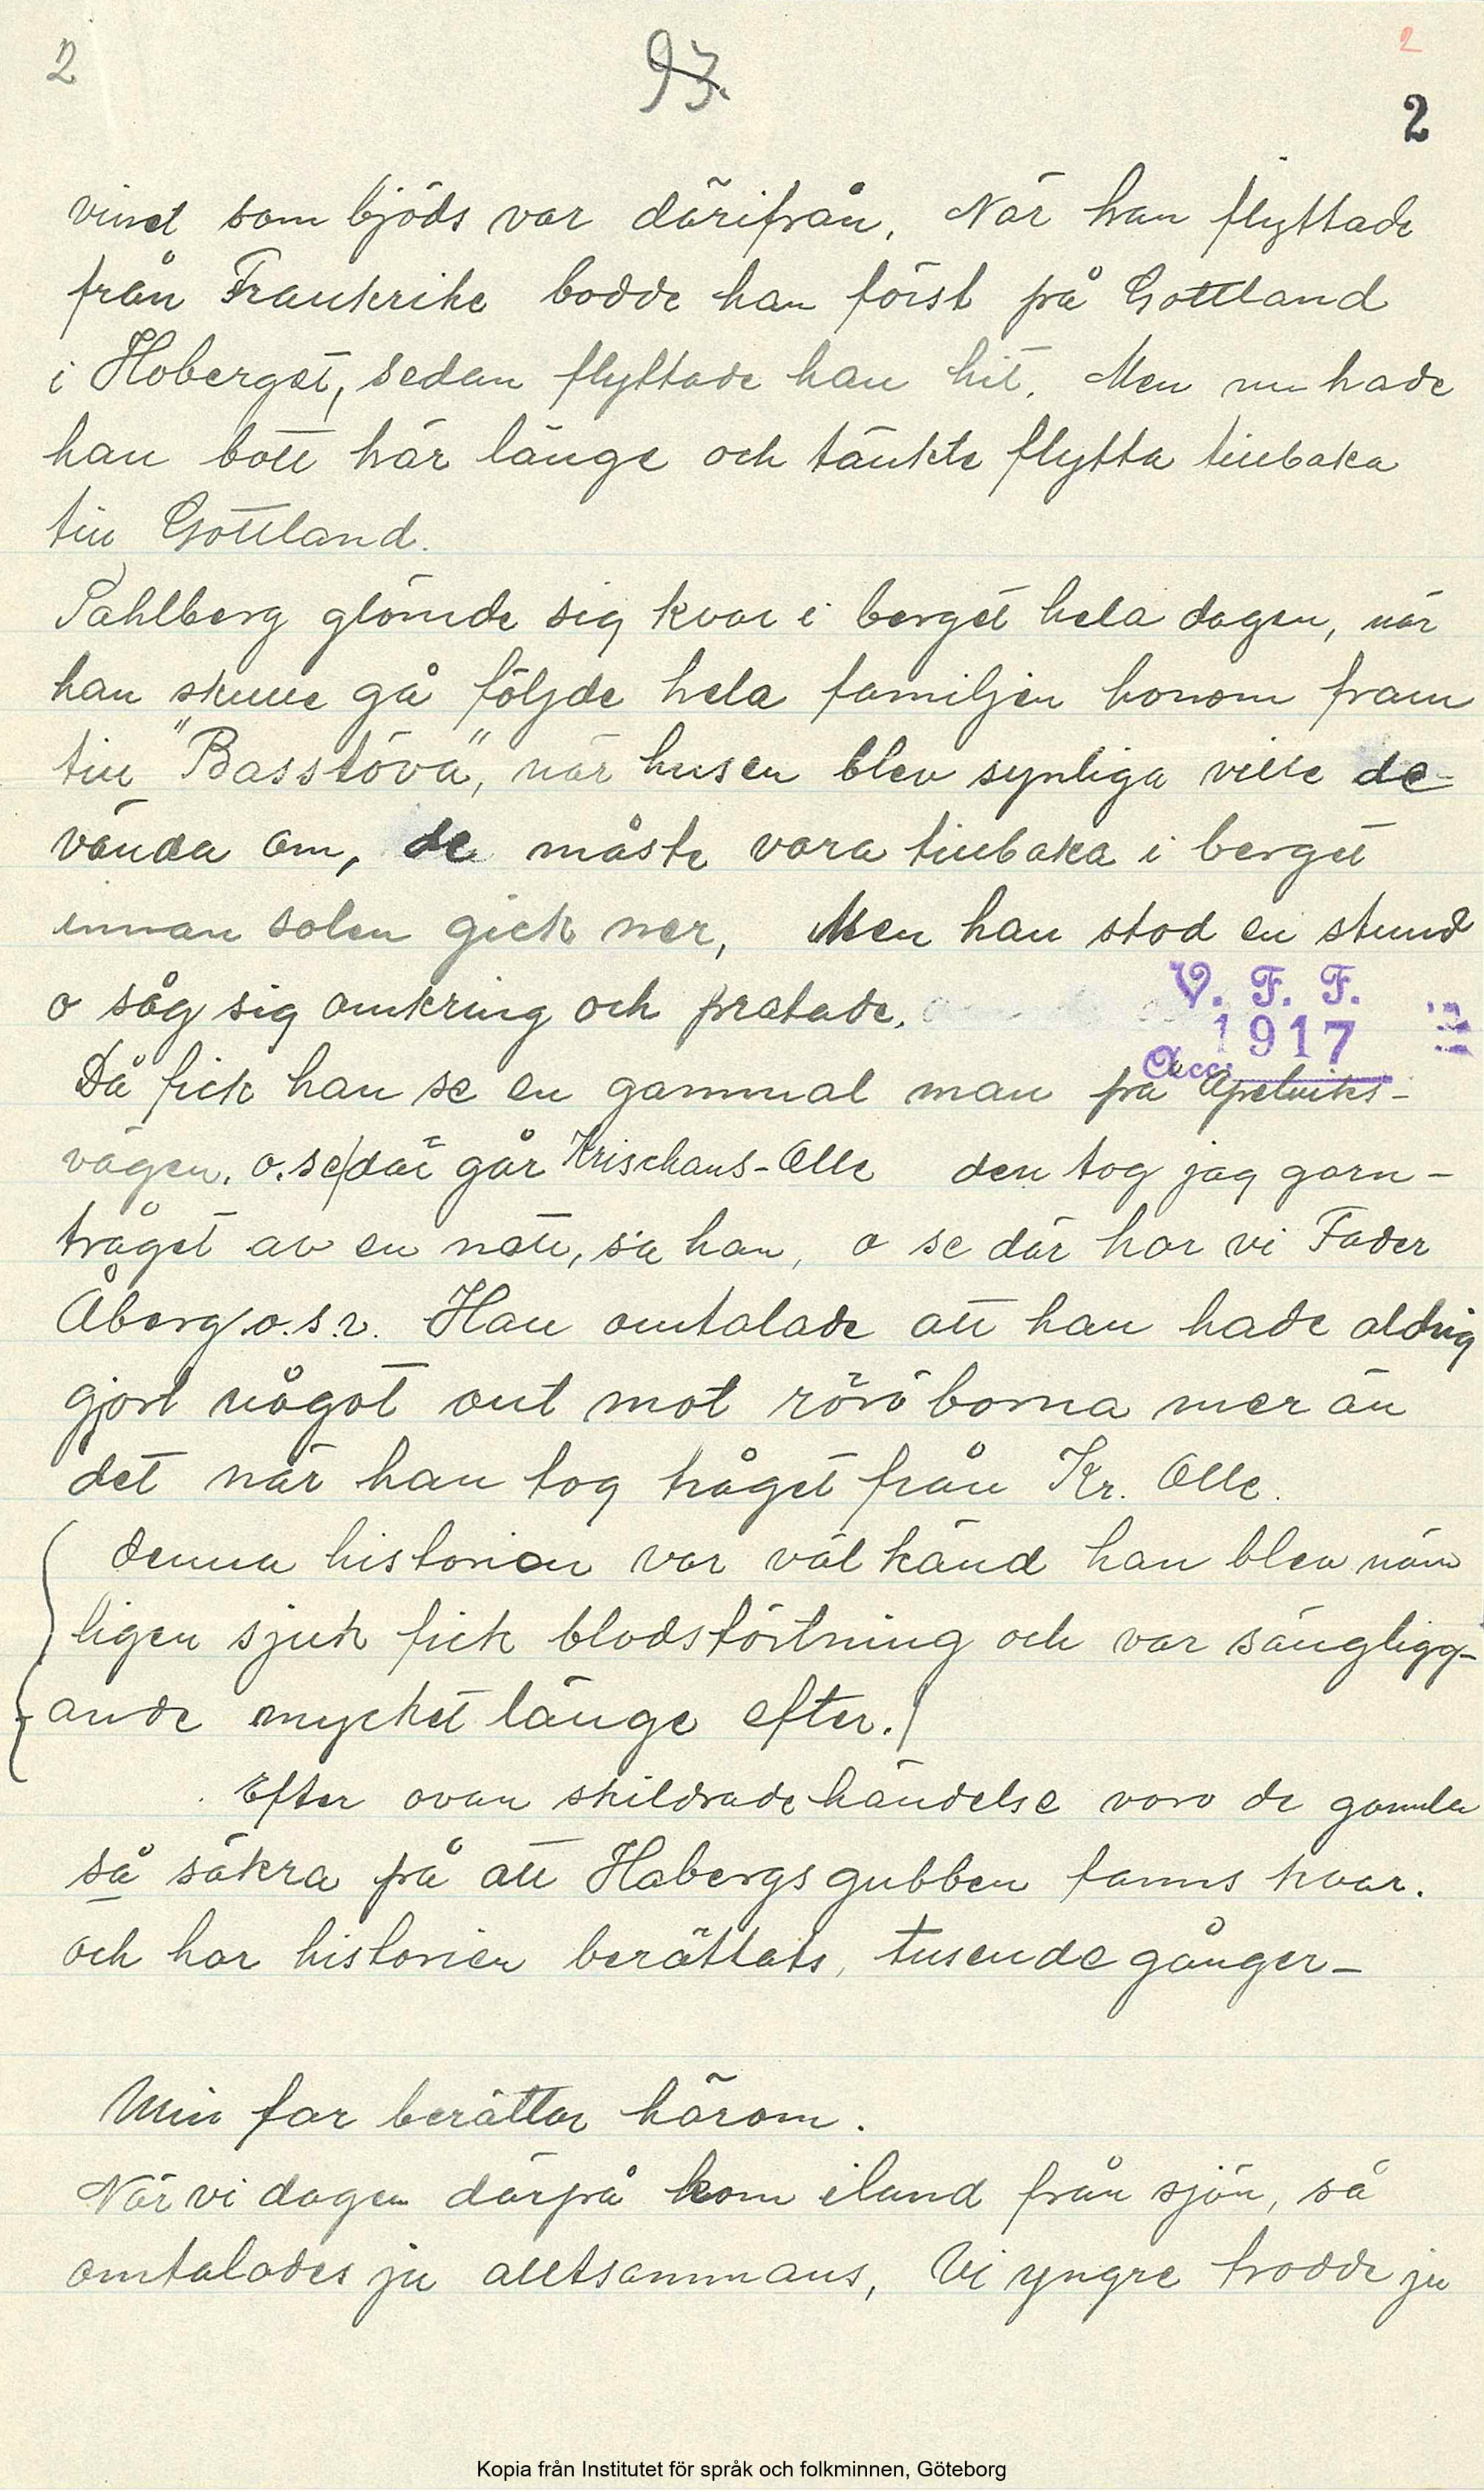 2
93.
2
2
vinet som bjöds var därifrån. När han flyttade
från Frankrike bodde han först på Gottland
i Hoberget, sedan flyttade han hit. Men nu hade
han bott här länge och tänkte flytta tillbaka
till Gottland.
Pahlberg glömde sig kvar i berget hela dagen, när
han skulle gå följde hela familjen honom fram
till "Basstöva", när husen blev synliga ville de
vända om, de måste vara tillbaka i berget
innan solen gick ner, Men han stod en stund
o såg sig omkring och pratade.
V. F. F.
1917
Acc:
Då fick han se en gammal man på Apelviks-
vägen. o. se där går Krischans-Olle den tog jag garn-
tråget av en natt, sa han, o se där har vi Fader
Åberg o.s.v. Han omtalade att han hade aldrig
gjort något ont mot röröborna mer än
det när han tog tråget från Kr. Olle.
denna historien var väl känd han blev näm
ligen sjuk fick blodstörtning och var sängligg-
ande mycket länge efter.)
Efter ovan skildrade händelse voro de gamla
så säkra på att Hobergsgubben fanns kvar.
och har historien berättats, tusende gånger-
Min far berättar härom.
När vi dagen därpå kom iland från sjön, så
omtalades ju alltsammans, Vi yngre trodde ju
Kopia från Institutet för språk och folkminnen, Göteborg